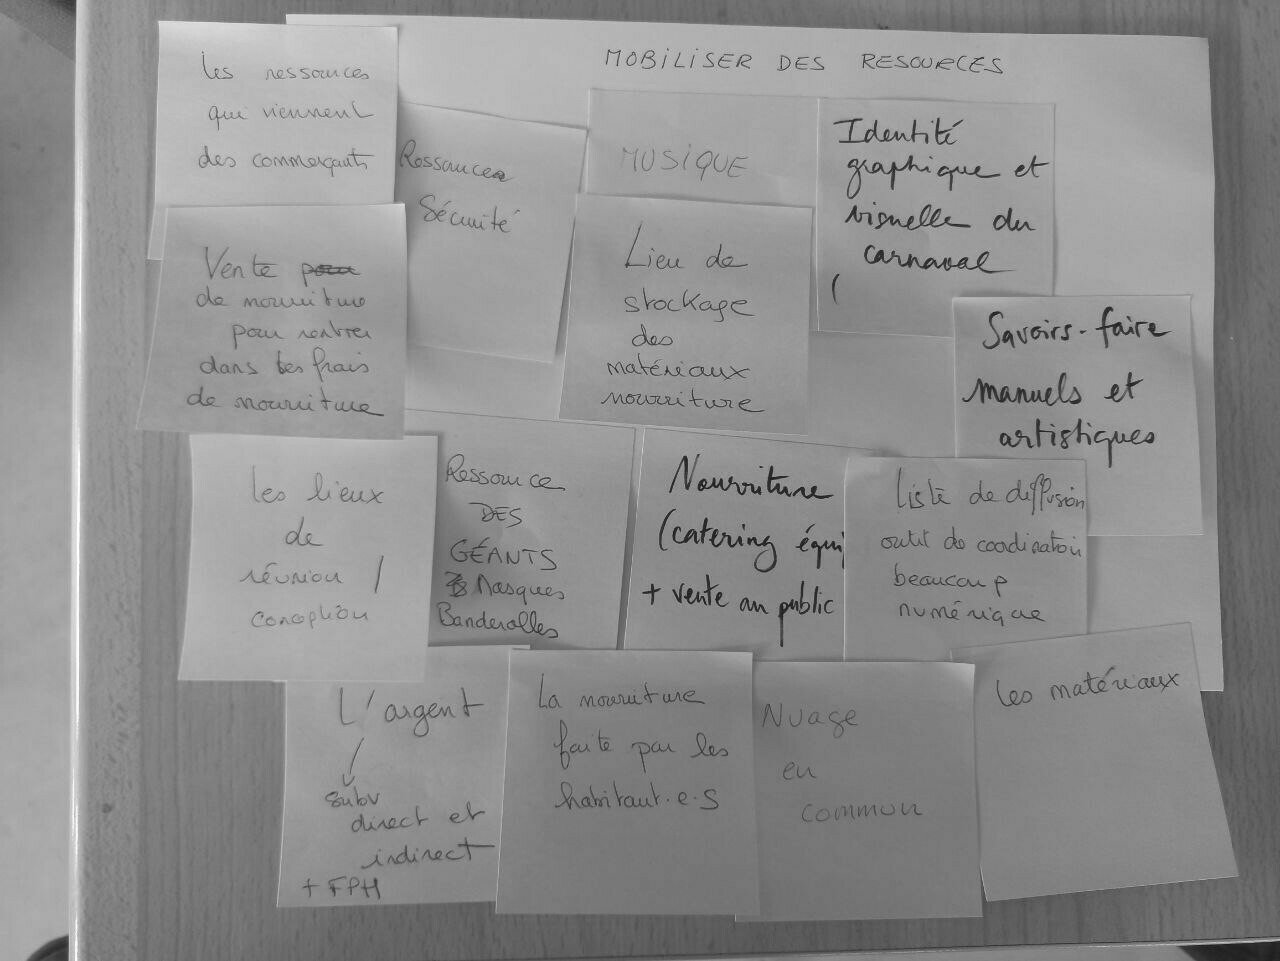 MOBILISER DES RESOURCES
les ressources
qui viennent
des commerçants
Ressources
Sécurité
MUSIQUE
Identité
graphique et
visuelle du
carnaval
(
Vente pour
de nourriture
pour rentrer
dans les frais
de nourriture
Lieu de
stockage
des
matériaux
nourriture
Savoirs-faire
manuels et
artistiques
les lieux
de
réunion /
conception
Ressource
DES
GÉANTS
Masques
Banderolles
Nourriture
(catering équi
+ vente au public
Liste de diffusion
outil de coordination
beaucoup
numérique
L'argent
subv
direct et
indirect
+ FPH
La nourriture
faite par les
habitant.e.s
Nuage
en
commun
les matériaux